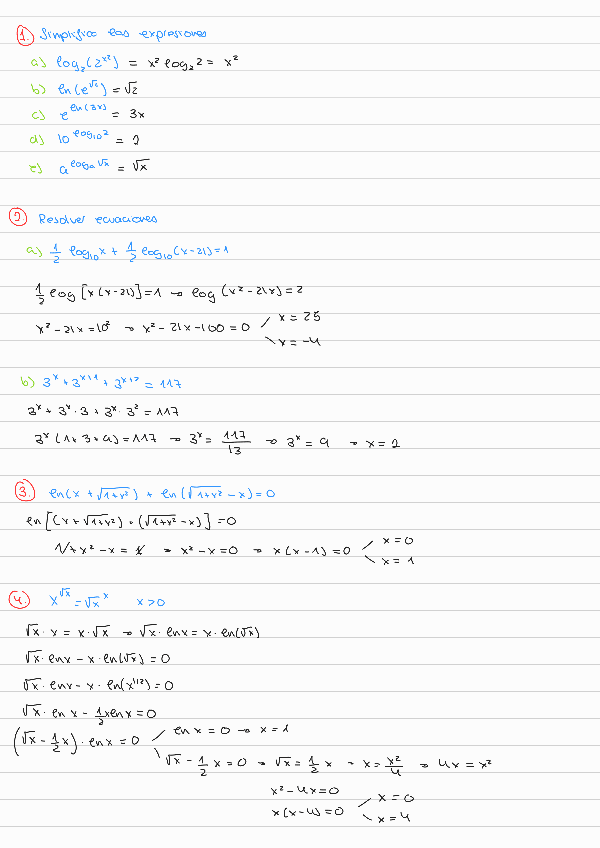 1. Simplifica las expresiones
a) log₂(2^x²) = x² log₂ 2 = x²
b) ln(e^√2) = √2
c) e^ln(3x) = 3x
d) 10^log₁₀2 = 2
e) a^logₐ√x = √x
2 Resolver ecuaciones
a) 1/2 log₁₀ x + 1/2 log₁₀ (x-21) = 1
1/2 log [x(x-21)] = 1 → log (x² - 21x) = 2
x² - 21x = 10² → x² - 21x - 100 = 0 x = 25
x = -4
b) 3^x + 3^x+1 + 3^x+2 = 117
3^x + 3^x · 3 + 3^x · 3² = 117
3^x (1 + 3 + 9) = 117 → 3^x = 117/13 → 3^x = 9 → x = 2
3. ln(x + √1+x²) + ln(√1+x² - x) = 0
ln[(x + √1+x²) · (√1+x² - x)] = 0
1 + x² - x = 1 → x² - x = 0 → x(x-1) = 0 x = 0
x = 1
4. x^√x = √x^x x > 0
√x · x = x · √x → √x · lnx = x · ln(√x)
√x · lnx - x · ln(√x) = 0
√x · lnx - x · ln(x^1/2) = 0
√x · ln x - 1/2 x ln x = 0
(√x - 1/2 x) · ln x = 0 ln x = 0 → x = 1
√x - 1/2 x = 0 → √x = 1/2 x → x = x²/4 → 4x = x²
x² - 4x = 0
x(x-4) = 0 x = 0
x = 4